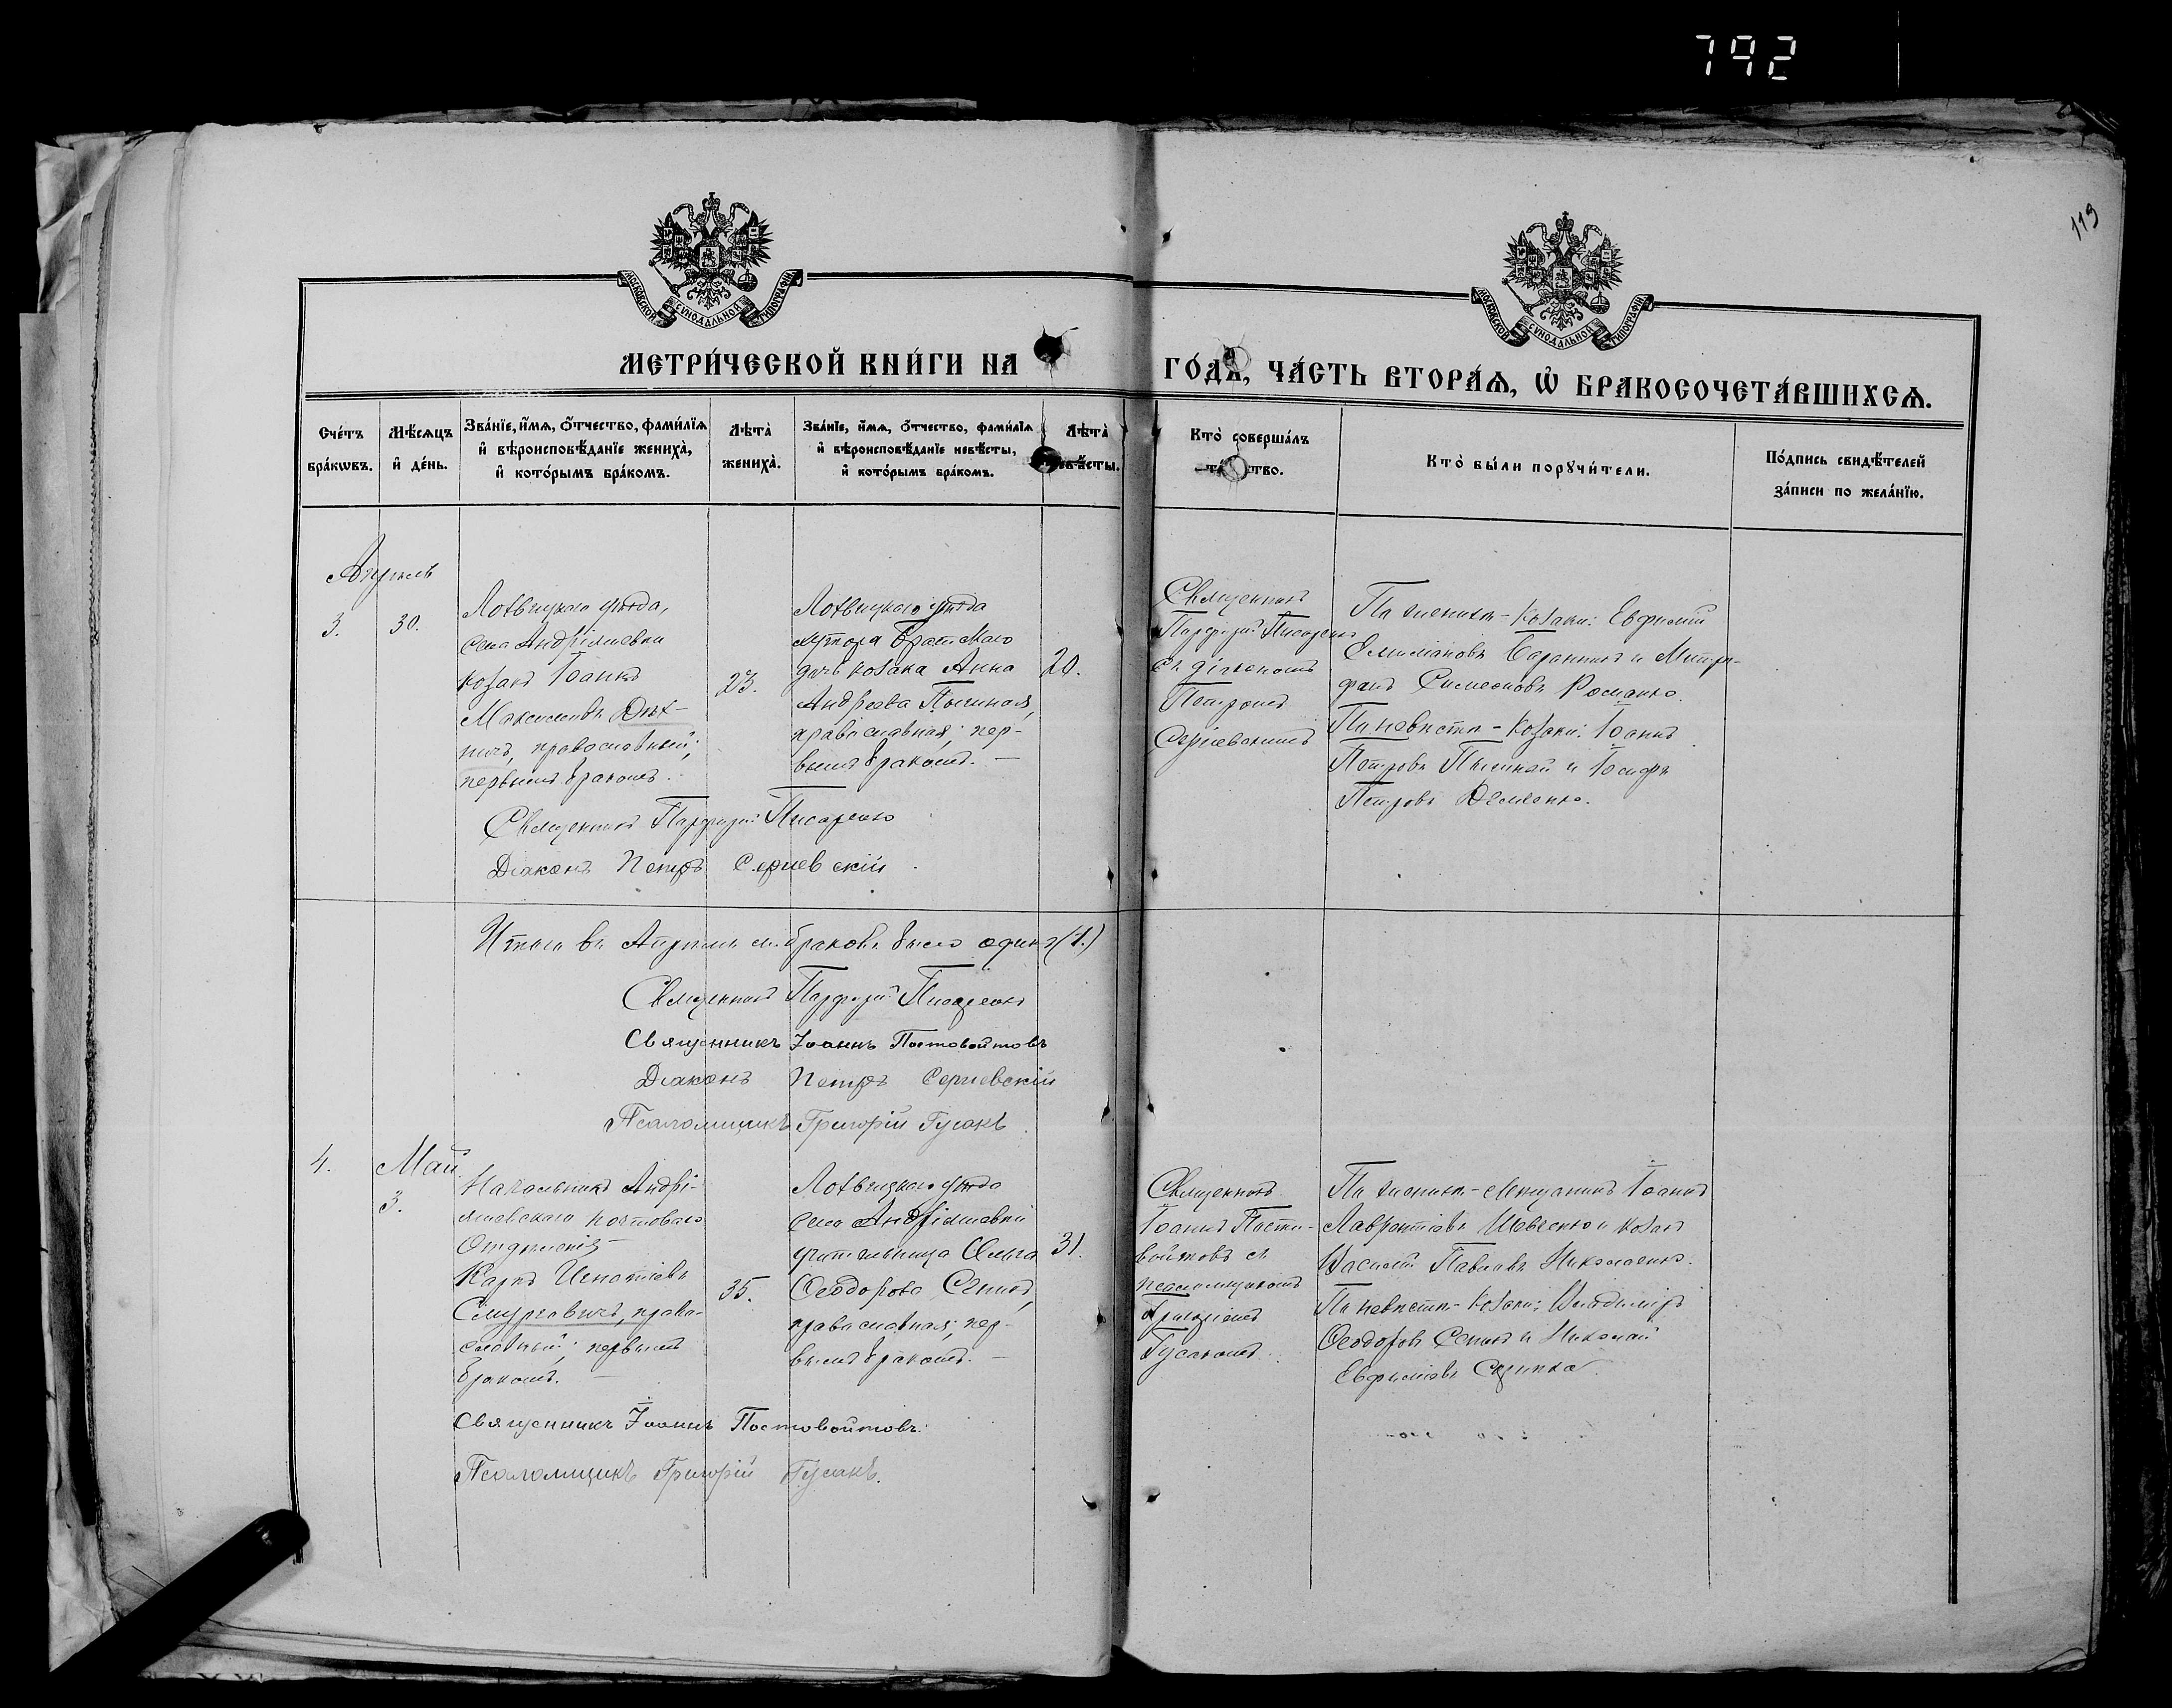 792
119
МОСКОВСКОЙ СУНОДАЛЬНОЙ ТИПОГРАФІИ
МОСКОВСКОЙ СУНОДАЛЬНОЙ ТИПОГРАФІИ
МЕТРИ́ЧЕСКОЙ КНИ́ГИ НА
ГО́ДЪ, ЧА́СТЬ ВТОРА́Ѧ, Ѡ БРАКОСОЧЕТА́ВШИХСѦ.
Сче́тъ бра́кѡвъ.
Мѣ́сяцъ и҆ де́нь.
Зва́нїе, и҆́мѧ, ѻ҆́тчество, фами́лїѧ
и҆ вѣроисповѣ́данїе жениха̀,
и҆ кото́рымъ бра́комъ.
Лѣта̀ жениха̀.
Зва́нїе, и҆́мѧ, ѻ҆́тчество, фами́лїѧ
и҆ вѣроисповѣ́данїе невѣ́сты,
и҆ кото́рымъ бра́комъ.
Лѣта̀
Кто̀ соверша́лъ
Кто̀ бы́ли порꙋчи́тели.
По́дпись свидѣ́телей
за́писи по жела́нїю.
Апрѣль
3.
30.
Лохвицкаго уѣзда,
села Андріяшевки
козакъ Іоаннъ
Максимовъ
православный;
первымъ бракомъ.
23.
Лохвицкаго уѣзда
хутора
дочь козака Анна
Андреева
православная; пер-
вымъ бракомъ. —
20.
Священникъ
Парфеній Писаренко
съ діакономъ
Петромъ
Сергіевскимъ
По женихѣ - козаки: Евфимій
и Митро-
фанъ Симеоновъ Романко.
По невѣстѣ - козаки: Іоаннъ
Петровъ и Іосифъ
Петровъ Деменко.
Священникъ Парфеній Писаренко
Діаконъ Петръ Сергіевскій
Итого въ Апрѣлѣ м. браковъ было одинъ (1.)
Священникъ Парфеній Писаренко
Священникъ Іоаннъ Постовойтовъ
Діаконъ Петръ Сергіевскій
Псаломщикъ Григорій Гусакъ
4.
Май
3.
Начальникъ Андрі-
яшевскаго почтоваго
Отдѣленія
Карпъ Игнатіевъ
Смургевичъ, право-
славный; первымъ
бракомъ. —
35.
Лохвицкаго уѣзда
села Андріяшевки
учительница Ольга
Ѳеодорова
православная; пер-
вымъ бракомъ. —
31.
Священникъ
Іоаннъ Посто-
войтовъ съ
псаломщикомъ
Григоріемъ
Гусакомъ.
По женихѣ - мещанинъ Іоаннъ
Лаврентіевъ и козакъ
Василій Павловъ Николаенко.
По невѣстѣ - козаки: Владиміръ
Ѳеодоровъ и Николай
Евфиміевъ
Священникъ Іоаннъ Постовойтовъ.
Псаломщикъ Григорій Гусакъ.